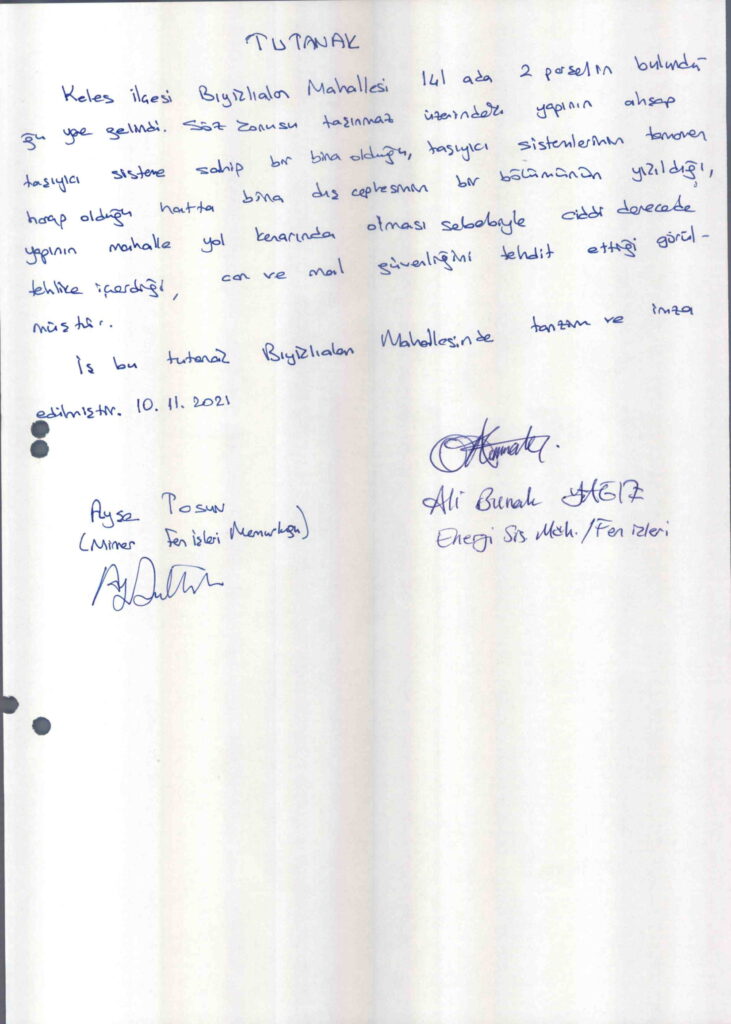 TUTANAK
Keles ilçesi Bıyıklıalan Mahallesi 141 ada 2 parselin bulundu-
ğu yere gelindi. Söz konusu taşınmaz üzerindeki yapının ahşap
taşıyıcı sisteme sahip bir bina olduğu, taşıyıcı sistemlerinin tamamen
harap olduğu hatta bina dış cephesinin bir bölümünün yıkıldığı,
yapının mahalle yol kenarında olması sebebiyle ciddi derecede
tehlike içerdiği, can ve mal güvenliğini tehdit ettiği görül-
müştür.
İş bu tutanak Bıyıklıalan Mahallesinde tanzim ve imza
edilmiştir. 10.11.2021
Ayşe Tosun
(Mimar Fen işleri Memurluğu)
Ali Burak YAĞIZ
Enerji Sis Müh./Fen işleri